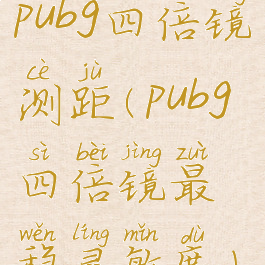 pubg四倍镜
cè jù
测距(pubg
sì bèi jìng zuì
四倍镜最
wěn líng mǐn dù
稳灵敏度)